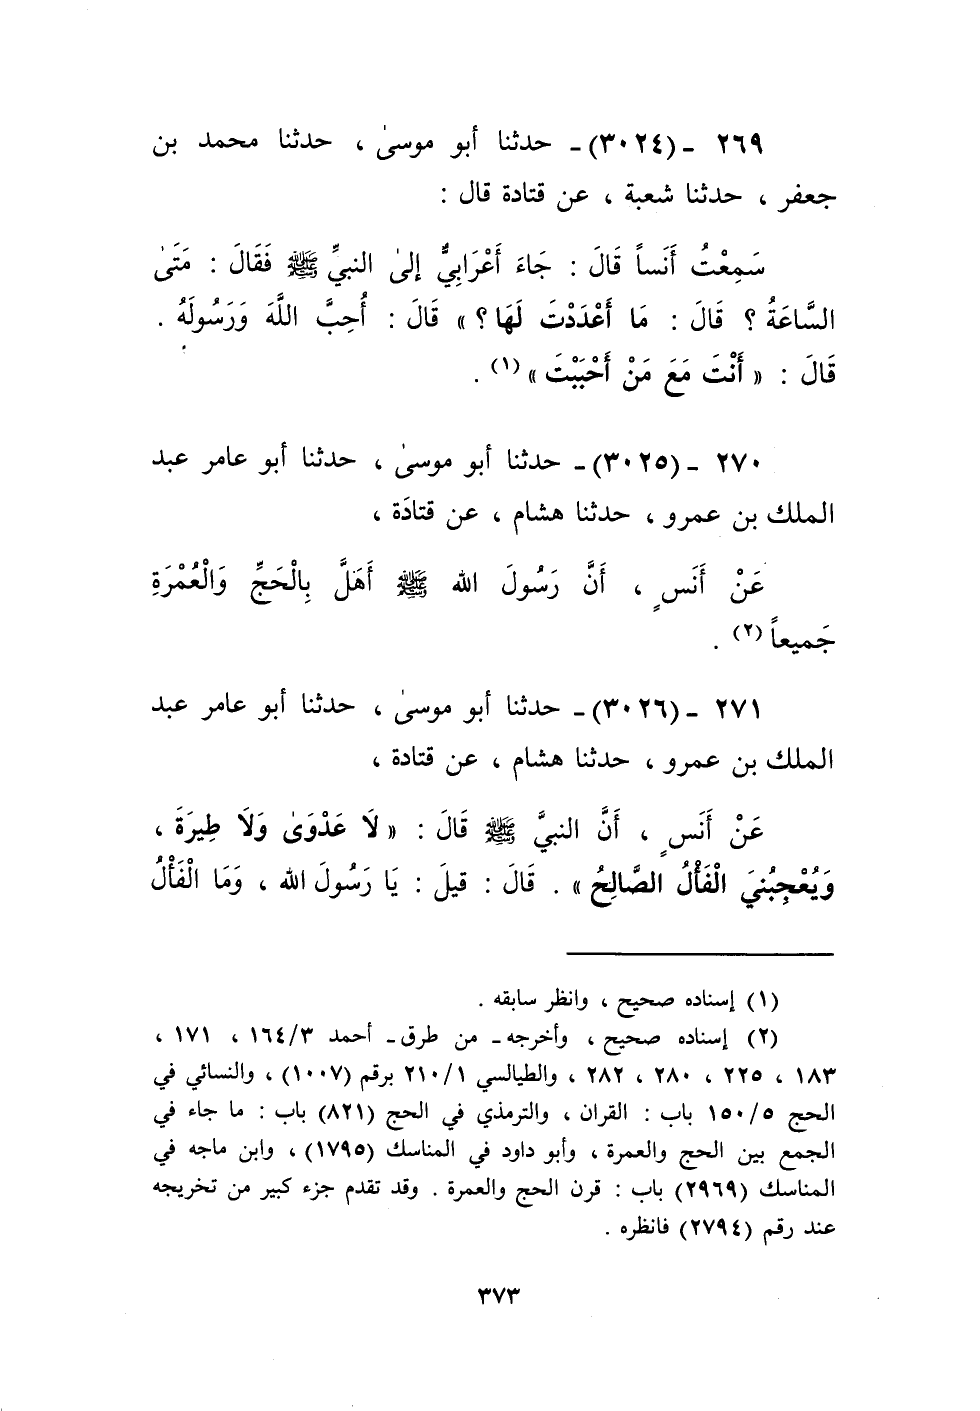 ٢٦٩ ـ (٣٠٢٤) ـ حدثنا أبو موسىٰ ، حدثنا محمد بن
جعفر ، حدثنا شعبة ، عن قتادة قال :
سَمِعْتُ أَنَساً قَالَ : جَاءَ أَعْرَابِيٌّ إلىٰ النبيِّ ﷺ فَقَالَ : مَتَىٰ
السَّاعَةُ ؟ قَالَ : مَا أَعْدَدْتَ لَهَا ؟ » قَالَ : أُحِبَّ اللَّهَ وَرَسُولَهُ .
قَالَ : « أَنْتَ مَعَ مَنْ أَحْبَبْتَ » (١) .
٢٧٠ ـ (٣٠٢٥) ـ حدثنا أبو موسىٰ ، حدثنا أبو عامر عبد
الملك بن عمرو ، حدثنا هشام ، عن قتادَة ،
عَنْ أَنَسٍ ، أَنَّ رَسُولَ الله ﷺ أَهَلَّ بِالْحَجِّ وَالْعُمْرَةِ
جَميعاً (٢) .
٢٧١ ـ (٣٠٢٦) ـ حدثنا أبو موسىٰ ، حدثنا أبو عامر عبد
الملك بن عمرو ، حدثنا هشام ، عن قتادة ،
عَنْ أَنَسٍ ، أَنَّ النبيَّ ﷺ قَالَ : « لَا عَدْوَىٰ وَلَا طِيرَةَ ،
وَيُعْجِبُنيَ الْفَأْلُ الصَّالِحُ » . قَالَ : قيلَ : يَا رَسُولَ الله ، وَمَا الْفَأْلُ
(١) إسناده صحيح ، وانظر سابقه .
(٢) إسناده صحيح ، وأخرجه ـ من طرق ـ أحمد ١٦٤/٣ ، ١٧١ ،
١٨٣ ، ٢٢٥ ، ٢٨٠ ، ٢٨٢ ، والطيالسي ٢١٠/١ برقم (١٠٠٧) ، والنسائي في
الحج ١٥٠/٥ باب : القران ، والترمذي في الحج (٨٢١) باب : ما جاء في
الجمع بين الحج والعمرة ، وأبو داود في المناسك (١٧٩٥) ، وابن ماجه في
المناسك (٢٩٦٩) باب : قرن الحج والعمرة . وقد تقدم جزء كبير من تخريجه
عند رقم (٢٧٩٤) فانظره .
٣٧٣